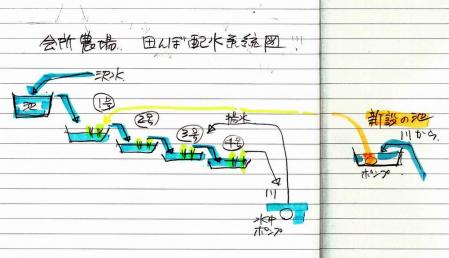 会所農場 田んぼ配水系統図
沢水
池
1号
2号
3号
4号
揚水
川
水中
ポンプ
新設の池
川から
ポンプ